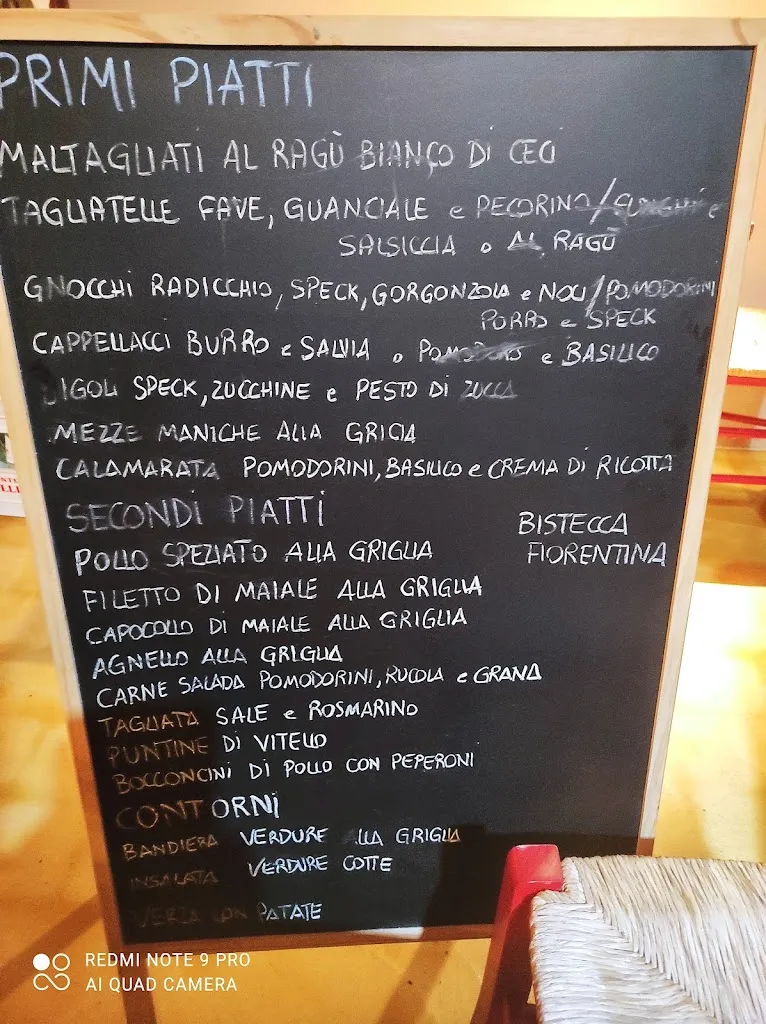 PRIMI PIATTI
MALTAGLIATI AL RAGÙ BIANCO DI CECI
TAGLIATELLE FAVE, GUANCIALE e PECORINO/FUNGHI e
SALSICCIA o AL RAGÙ
GNOCCHI RADICCHIO, SPECK, GORGONZOLA e NOCI/POMODORINI
PORRO e SPECK
CAPPELLACCI BURRO e SALVIA o POMODORO e BASILICO
BIGOLI SPECK, ZUCCHINE e PESTO DI ZUCCA
MEZZE MANICHE ALLA GRICIA
CALAMARATA POMODORINI, BASILICO e CREMA DI RICOTTA
SECONDI PIATTI
BISTECCA
FIORENTINA
POLLO SPEZIATO ALLA GRIGLIA
FILETTO DI MAIALE ALLA GRIGLIA
CAPOCOLLO DI MAIALE ALLA GRIGLIA
AGNELLO ALLA GRIGLIA
CARNE SALADA POMODORINI, RUCOLA e GRANA
TAGLIATA SALE e ROSMARINO
PUNTINE DI VITELLO
BOCCONCINI DI POLLO CON PEPERONI
CONTORNI
BANDIERA VERDURE ALLA GRIGLIA
INSALATA VERDURE COTTE
VERZA CON PATATE
REDMI NOTE 9 PRO
AI QUAD CAMERA